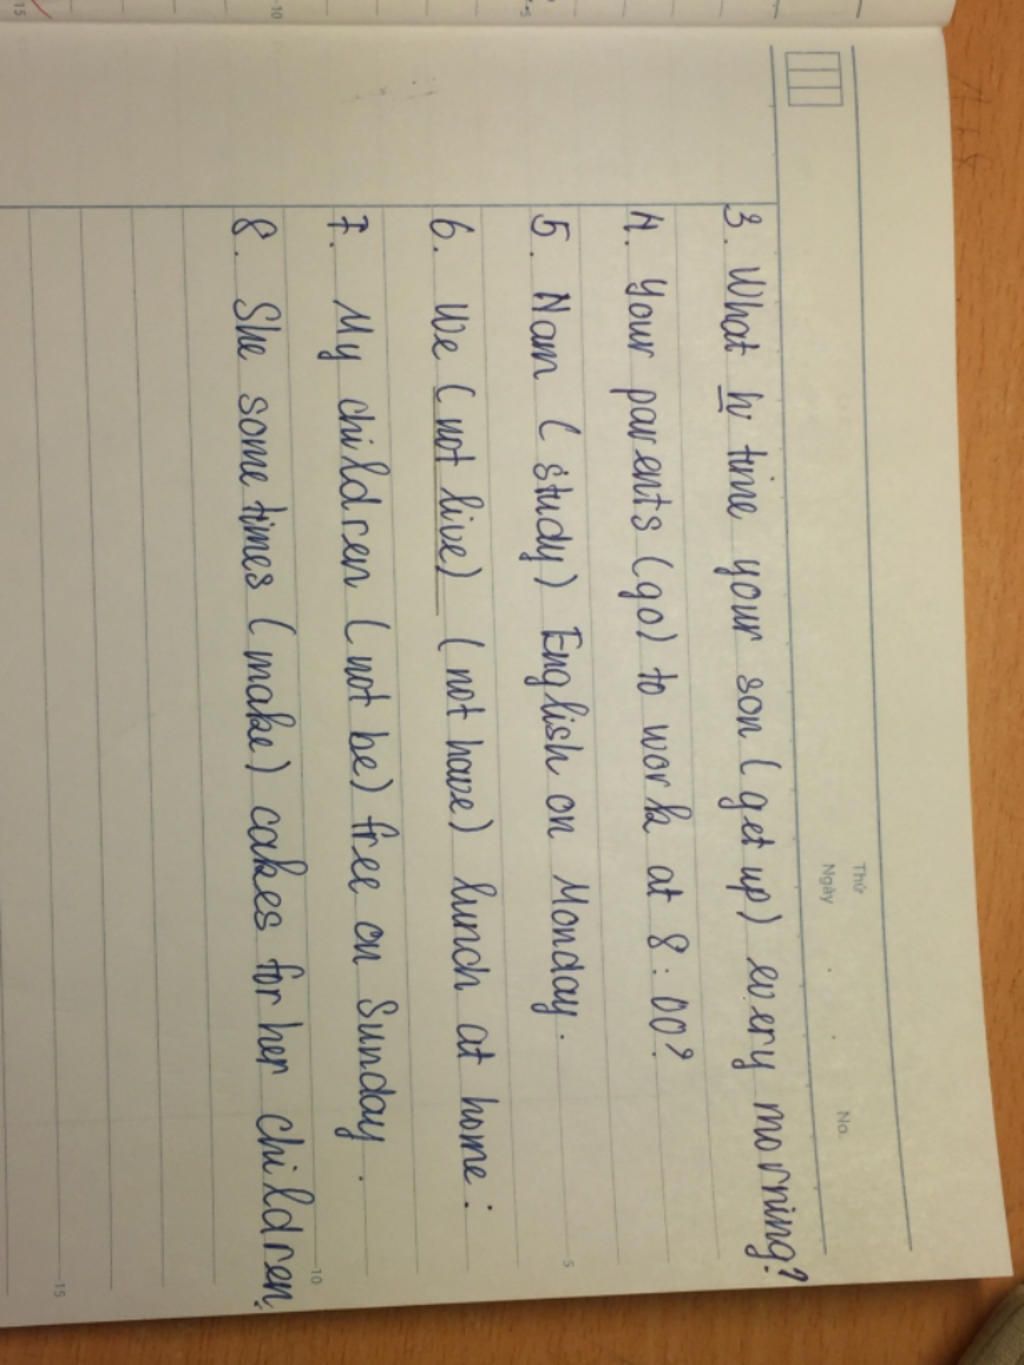 Thứ
Ngày
No.
3. What time your son (get up) every morning?
4. Your parents (go) to work at 8:00?
5. Nam (study) English on Monday.
6. We (not live) (not have) lunch at home.
7. My children (not be) free on Sunday.
8. She sometimes (make) cakes for her children.
5
10
15